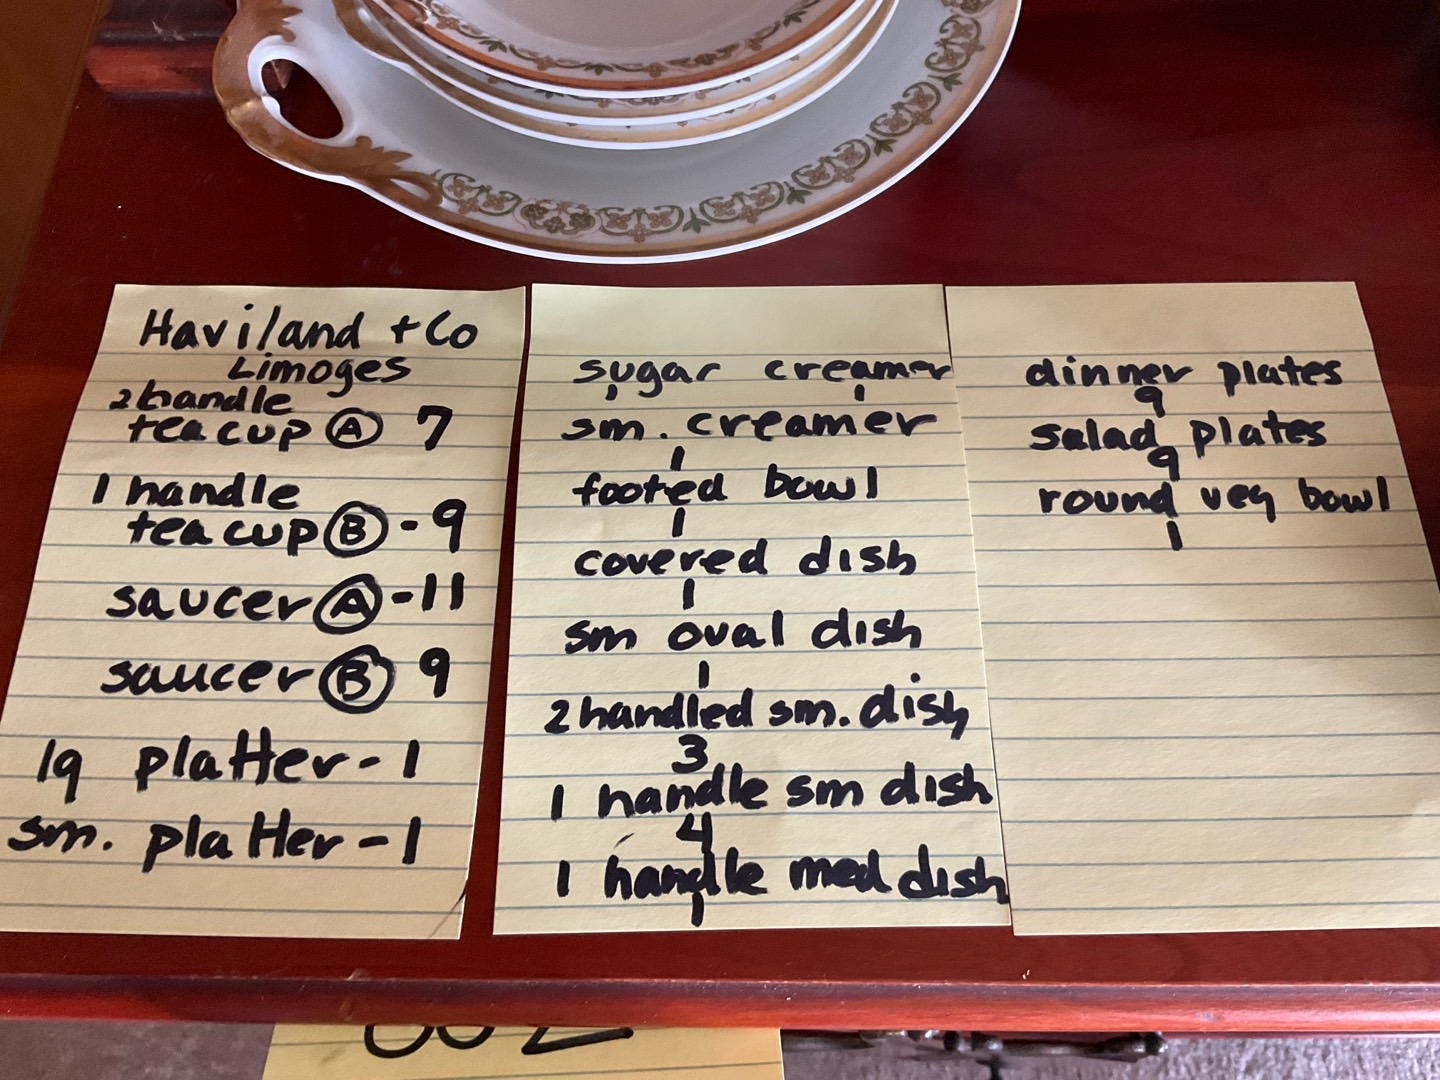 Haviland + Co
Limoges
2 handle
tea cup A 7
1 handle
tea cup B - 9
saucer A - 11
saucer B 9
19 platter - 1
sm. platter - 1
sugar creamer
1 1
sm. creamer
1
footed bowl
1
covered dish
1
sm oval dish
1
2 handled sm. dish
3
1 handle sm dish
4
1 handle med dish
1
dinner plates
9
salad plates
9
round veg bowl
1